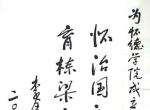 为怀德学院成立
怀治国
育栋梁
李
二〇